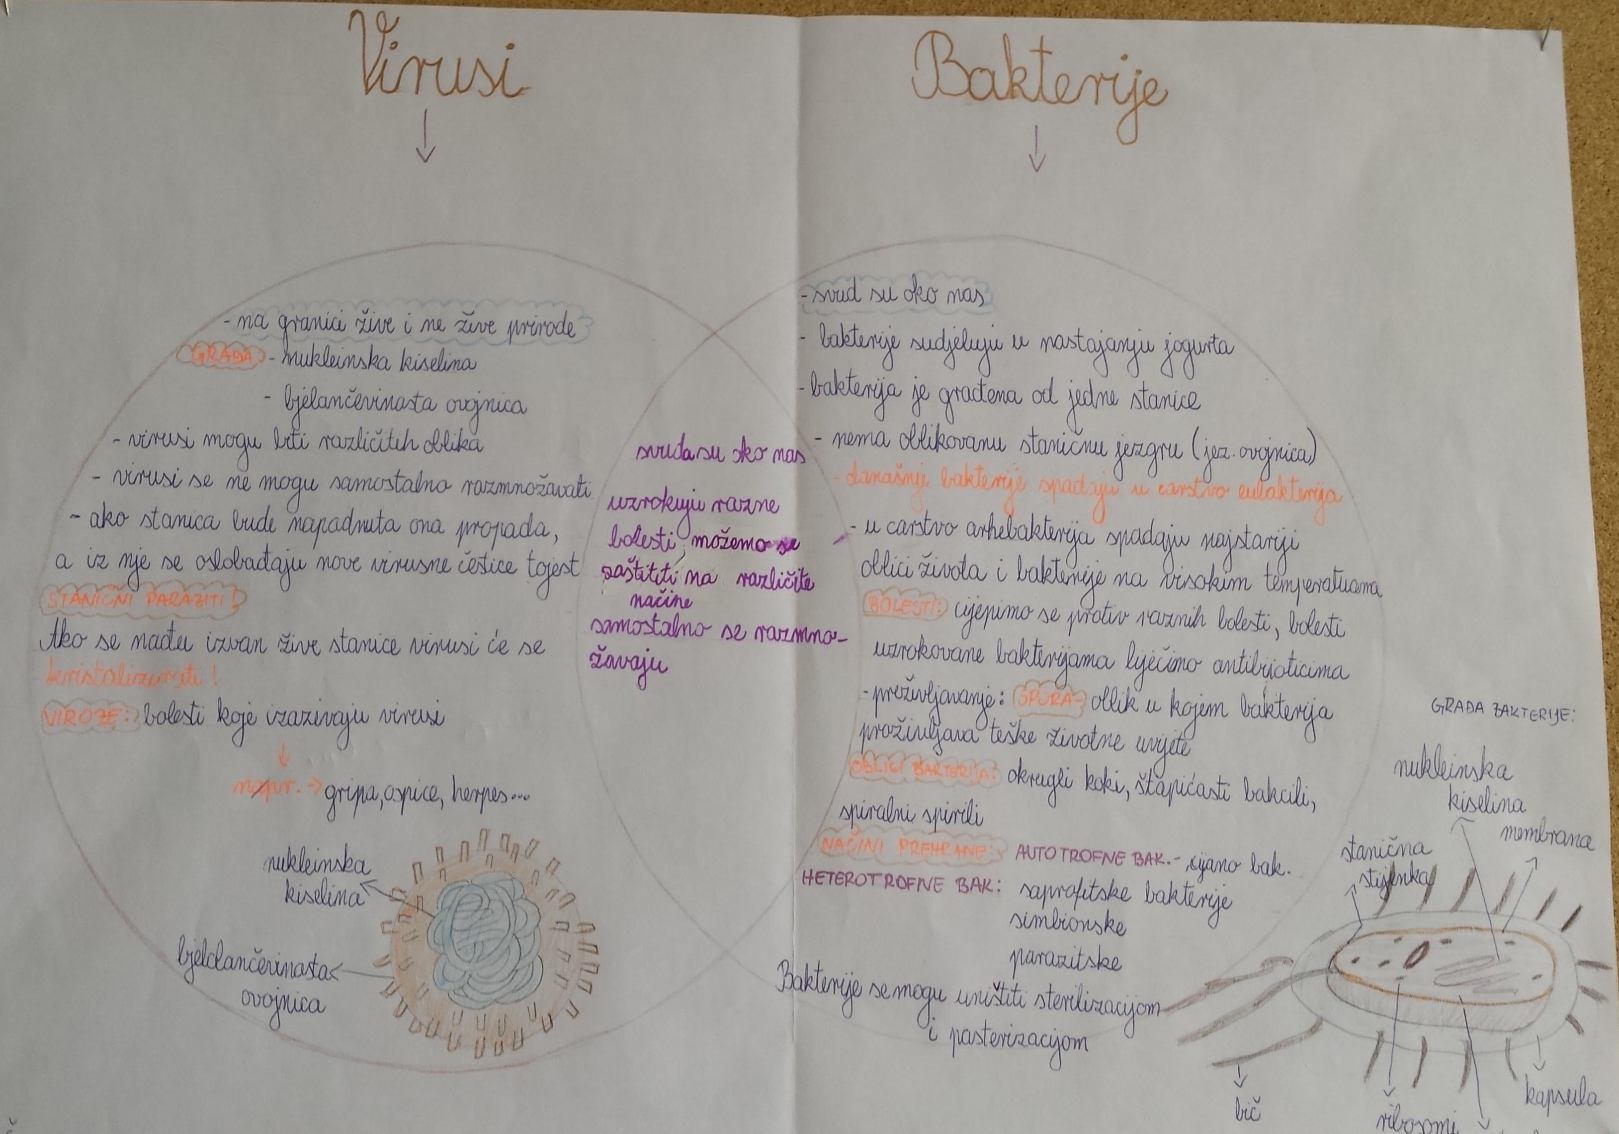 Virusi
- na granici žive i ne žive prirode
GRAĐA - nukleinska kiselina
- bjelančevinasta ovojnica
- virusi mogu biti različitih oblika
- virusi se ne mogu samostalno razmnožavati
- ako stanica bude napadnuta ona propada,
a iz nje se oslobađaju nove virusne čestice tojest
STANIČNI PARAZITI!
Ako se nađu izvan žive stanice virusi će se
kristalizirati!
VIROZE: bolesti koje izazivaju virusi
napr. → gripa, ospice, herpes...
nukleinska
kiselina
bjelančevinasta
ovojnica
svuda su oko nas
uzrokuju razne
bolesti možemo se
zaštititi na različite
načine
samostalno se razmno-
žavaju
Bakterije
- svud su oko nas
- bakterije sudjeluju u nastajanju jogurta
- bakterija je građena od jedne stanice
- nema oblikovanu staničnu jezgru (jez. ovojnica)
- današnje bakterije spadaju u carstvo eubakterija
- u carstvo arhebakterija spadaju najstariji
oblici života i bakterije na visokim temperatuama
BOLESTI: cijepimo se protiv raznih bolesti, bolesti
uzrokovane bakterijama liječimo antibioticima
- preživljavanje: SPORA- oblik u kojem bakterija
preživljava teške životne uvjete
OBLICI BAKTERIJA: okrugli koki, štapićasti bakcili,
spiralni spirili
NAČINI PREHRANE: AUTOTROFNE BAK. - cijano bak.
HETEROTROFNE BAK: saprofitske bakterije
simbionske
parazitske
Bakterije se mogu uništiti sterilizacijom
i pasterizacijom
GRAĐA BAKTERIJE:
nukleinska
kiselina
membrana
stanična
stijenka
kapsula
bič
ribosomi